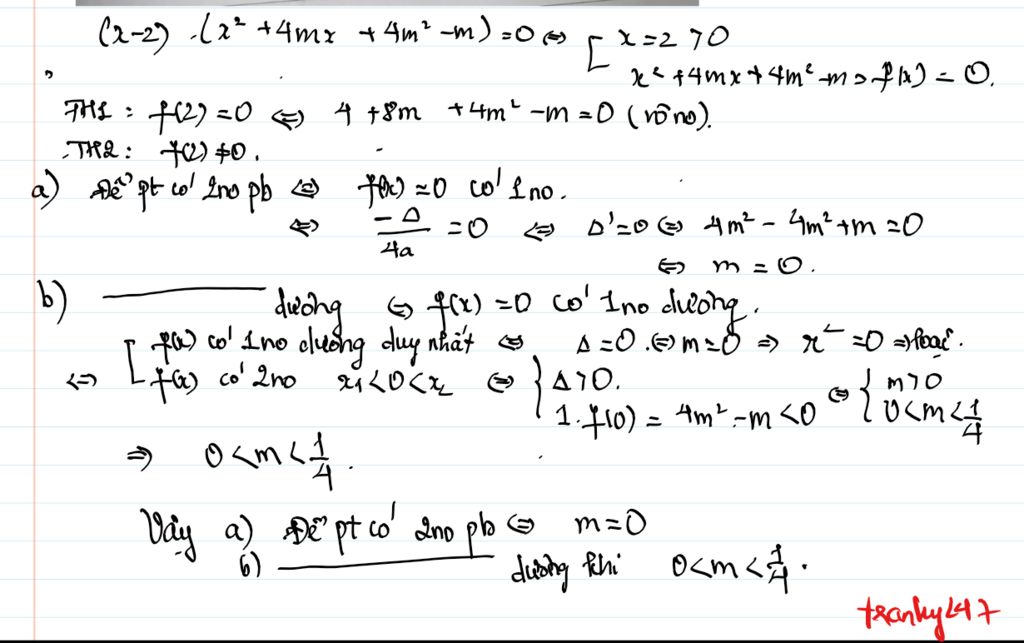 (x-2).(x² + 4mx + 4m² - m) = 0 ⇔ [ x = 2 > 0
x² + 4mx + 4m² - m = f(x) = 0.
TH1 : f(2) = 0 ⇔ 4 + 8m + 4m² - m = 0 (vô no).
TH2 : f(2) ≠ 0.
a) Để pt có 2no pb ⇔ f(x) = 0 có 1no.
⇔ -Δ/4a = 0 ⇔ Δ' = 0 ⇔ 4m² - 4m² + m = 0
⇔ m = 0.
b) ——— dương ⇔ f(x) = 0 có 1no dương.
⇔ [ f(x) có 1no dương duy nhất ⇔ Δ = 0 ⇔ m = 0 ⇒ x² = 0 ⇒ loại.
f(x) có 2no x₁ < 0 < x₂ ⇔ { Δ > 0. 1.f(0) = 4m² - m < 0 ⇔ { m > 0 0 < m < 1/4
⇒ 0 < m < 1/4.
Vậy a) Để pt có 2no pb ⇔ m = 0
b) ——— dương khi 0 < m < 1/4.
tranky247